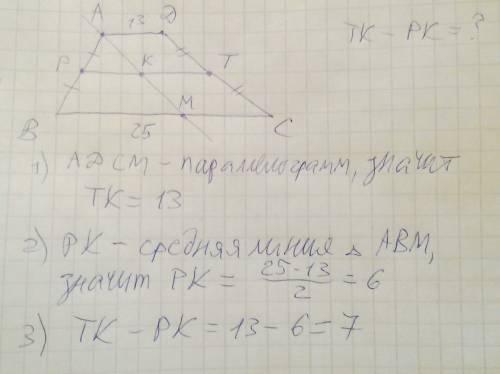 A 13 D
TK - PK = ?
P K T
M
B 25 C
1) ADCM - параллелограмм, значит
TK = 13
2) PK - средняя линия △ ABM,
значит PK = \frac{25-13}{2} = 6
3) TK - PK = 13 - 6 = 7